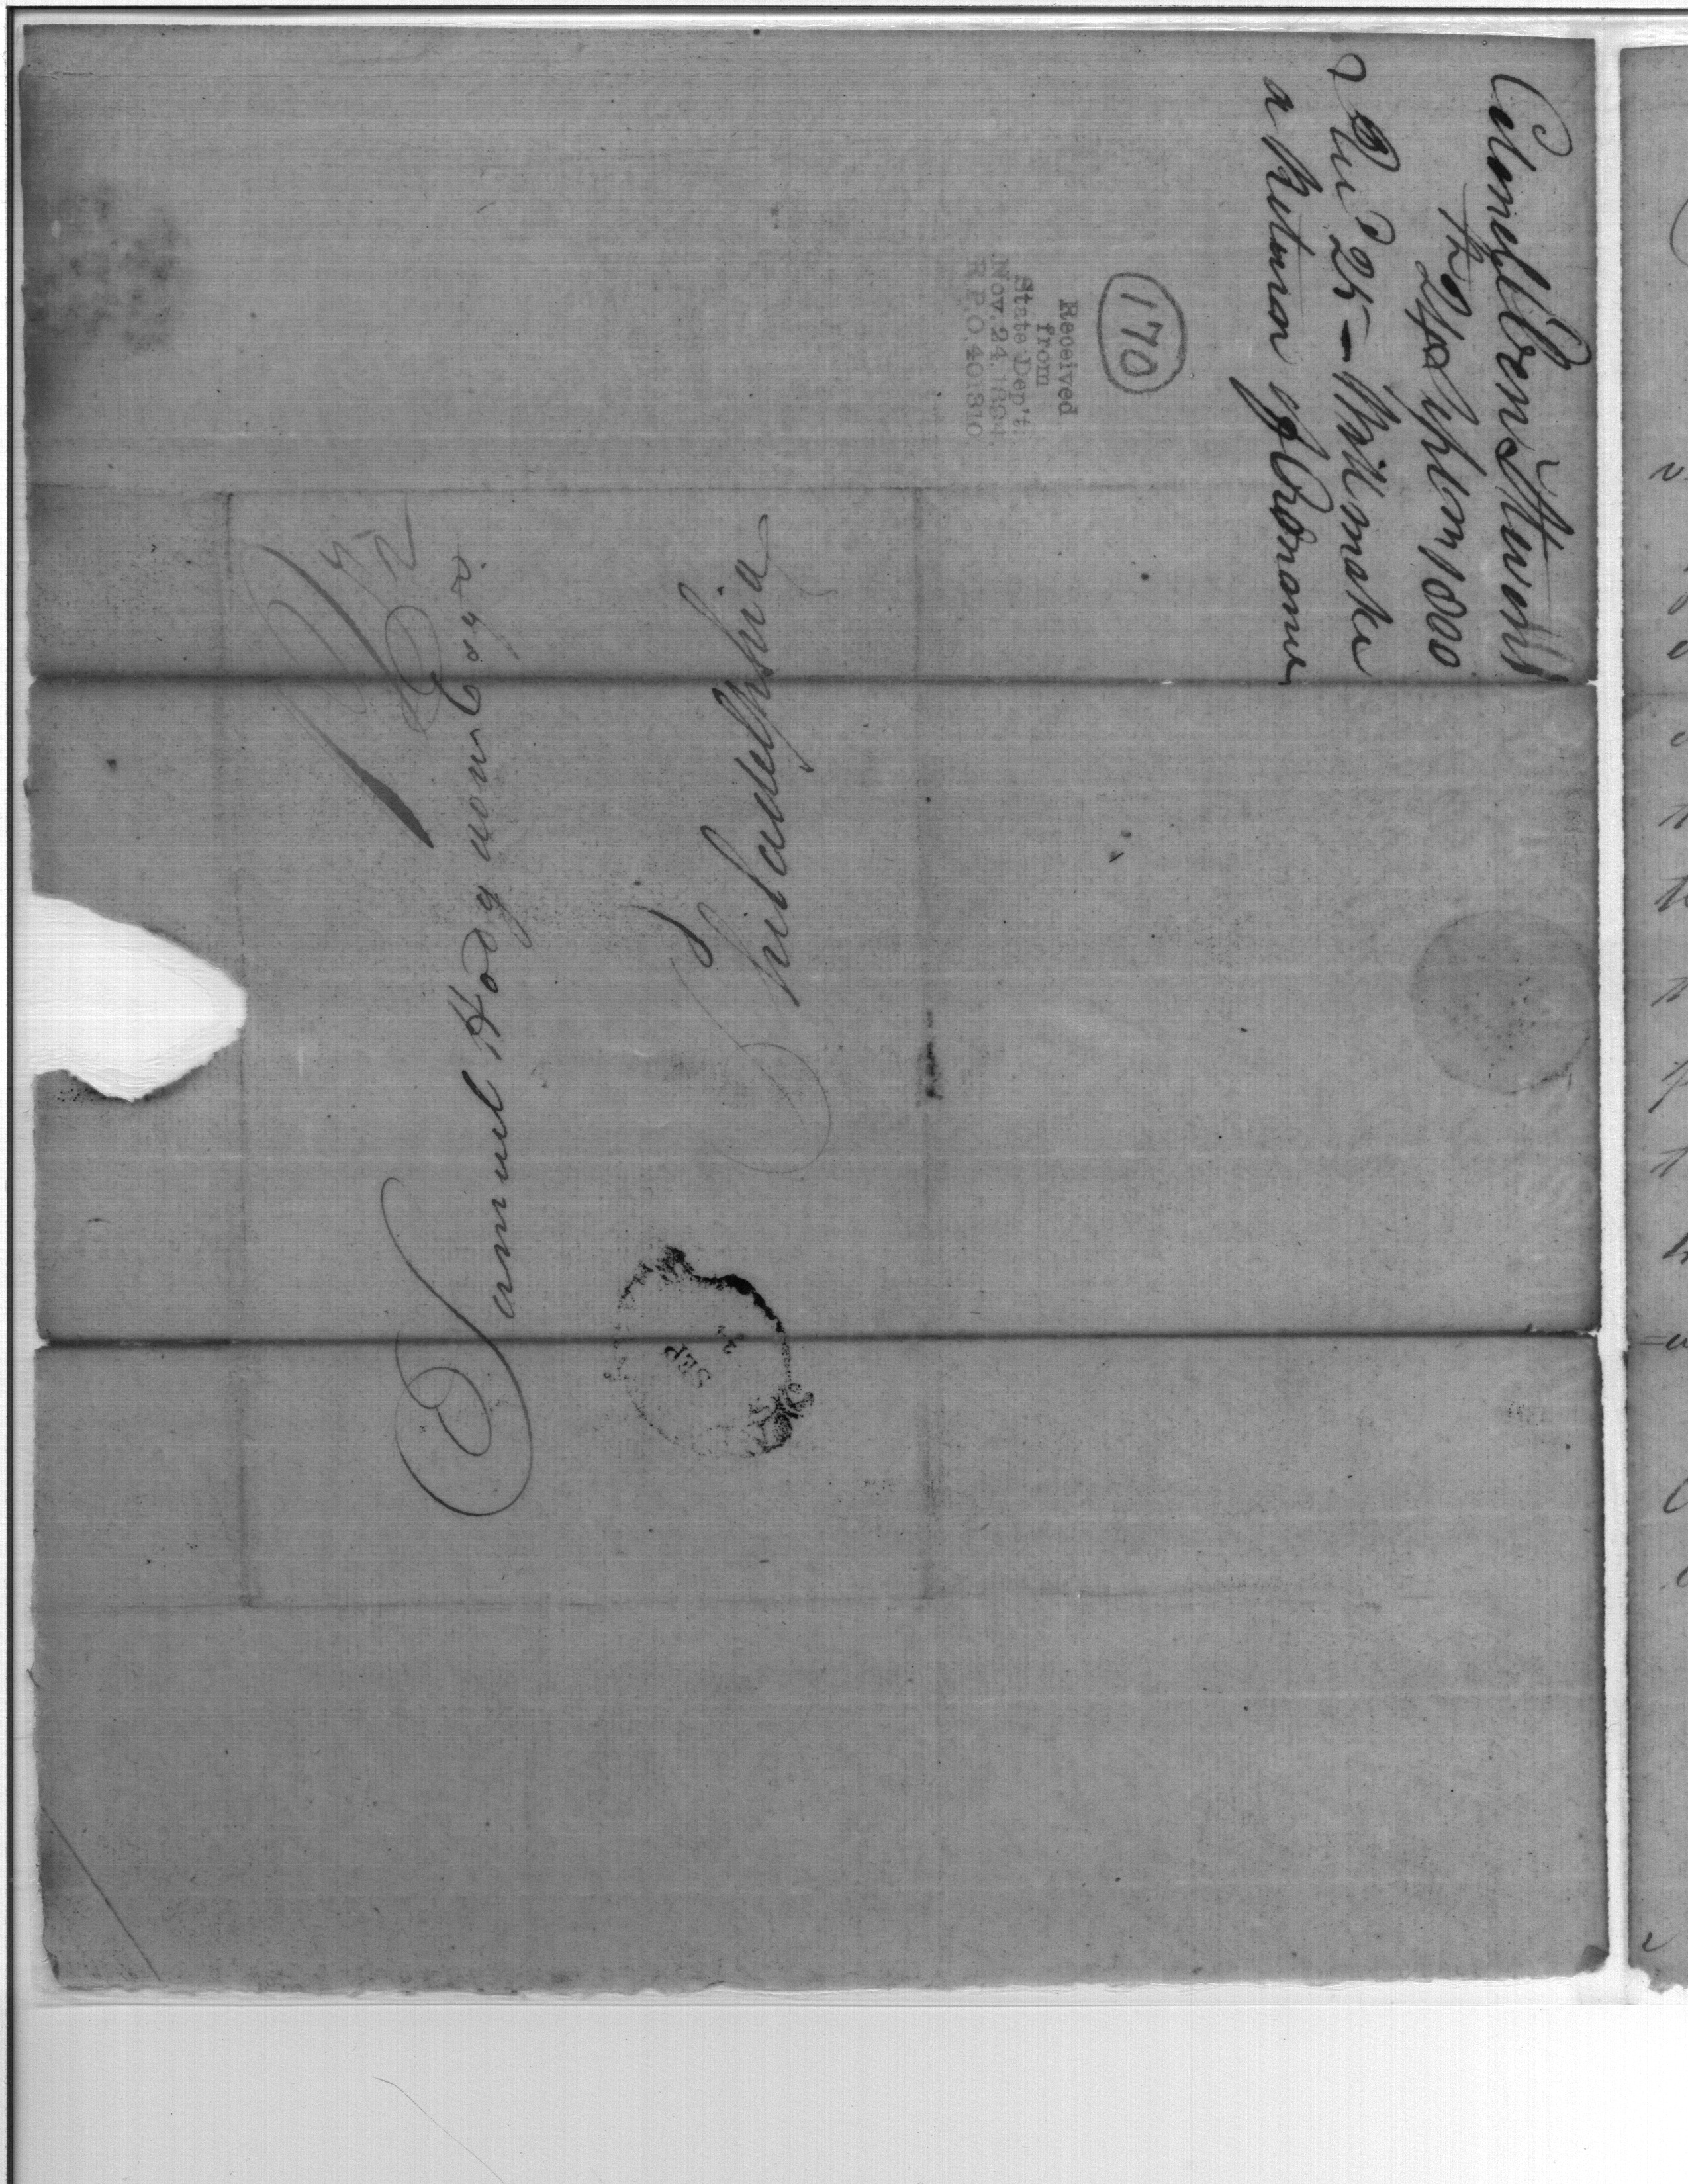 Colonel Eben Stevens
24 Septem 1800
Rec.d 25 – Will make
a Return of Ordnance
170
Received
from
State Dep't.
Nov. 24. 1894.
R.P.O. 401310
Samuel Hodgdon Esqr.
Philadelphia
SEP